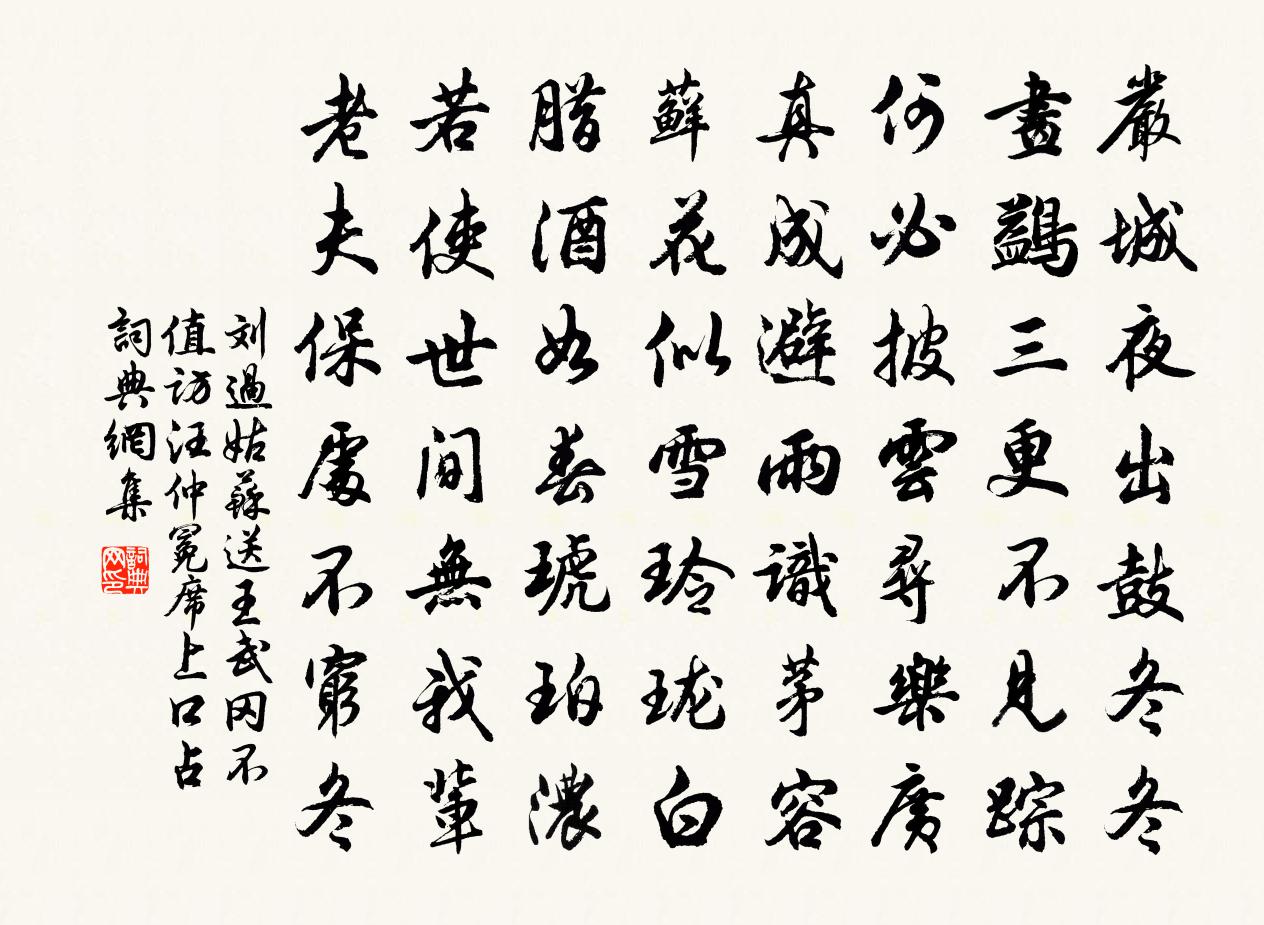 嚴城夜出鼓冬冬
畫鷁三更不見踪
何必披雲尋樂廣
真成避雨識茅容
蘚花似雪玲珑白
腊酒如春琥珀濃
若使世间無我輩
老夫保處不窮冬
刘過姑蘇送王武冈不
值访汪仲冕席上口占
詞典網集
詞典网印